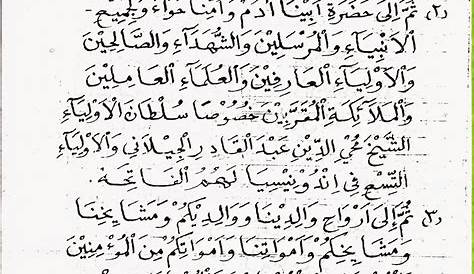 (٢) ثُمَّ اِلَى حَضْرَةِ اَبِيْنَا اٰدَمَ وَاُمِّنَا حَوَّاءَ وَلِجَمِيْعِ-
الْاَنْبِيَاءِ وَالْمُرْسَلِيْنَ وَالشُّهَدَاءِ وَالصَّالِحِيْنَ
وَالْاَوْلِيَاءِ الْعَارِفِيْنَ وَالْعُلَمَاءِ الْعَامِلِيْنَ
وَالْمَلَائِكَةِ الْمُقَرَّبِيْنَ خُصُوْصًا سُلْطَانِ الْاَوْلِيَاءِ
الشَّيْخِ مُحْيِ الدِّيْنِ عَبْدِ الْقَادِرِ الْجِيْلَانِيْ وَالْاَوْلِيَاءِ
التِّسْعِ فِى اِنْدُوْنِيْسِيَا لَهُمُ الْفَاتِحَة.
(٣) ثُمَّ اِلَى اَرْوَاحِ وَالِدِيْنَا وَوَالِدِيْكُمْ وَمَشَايِخِنَا
وَمَشَايِخِكُمْ وَاَمْوَاتِنَا وَاَمْوَاتِكُمْ مِنَ الْمُؤْمِنِيْنَ